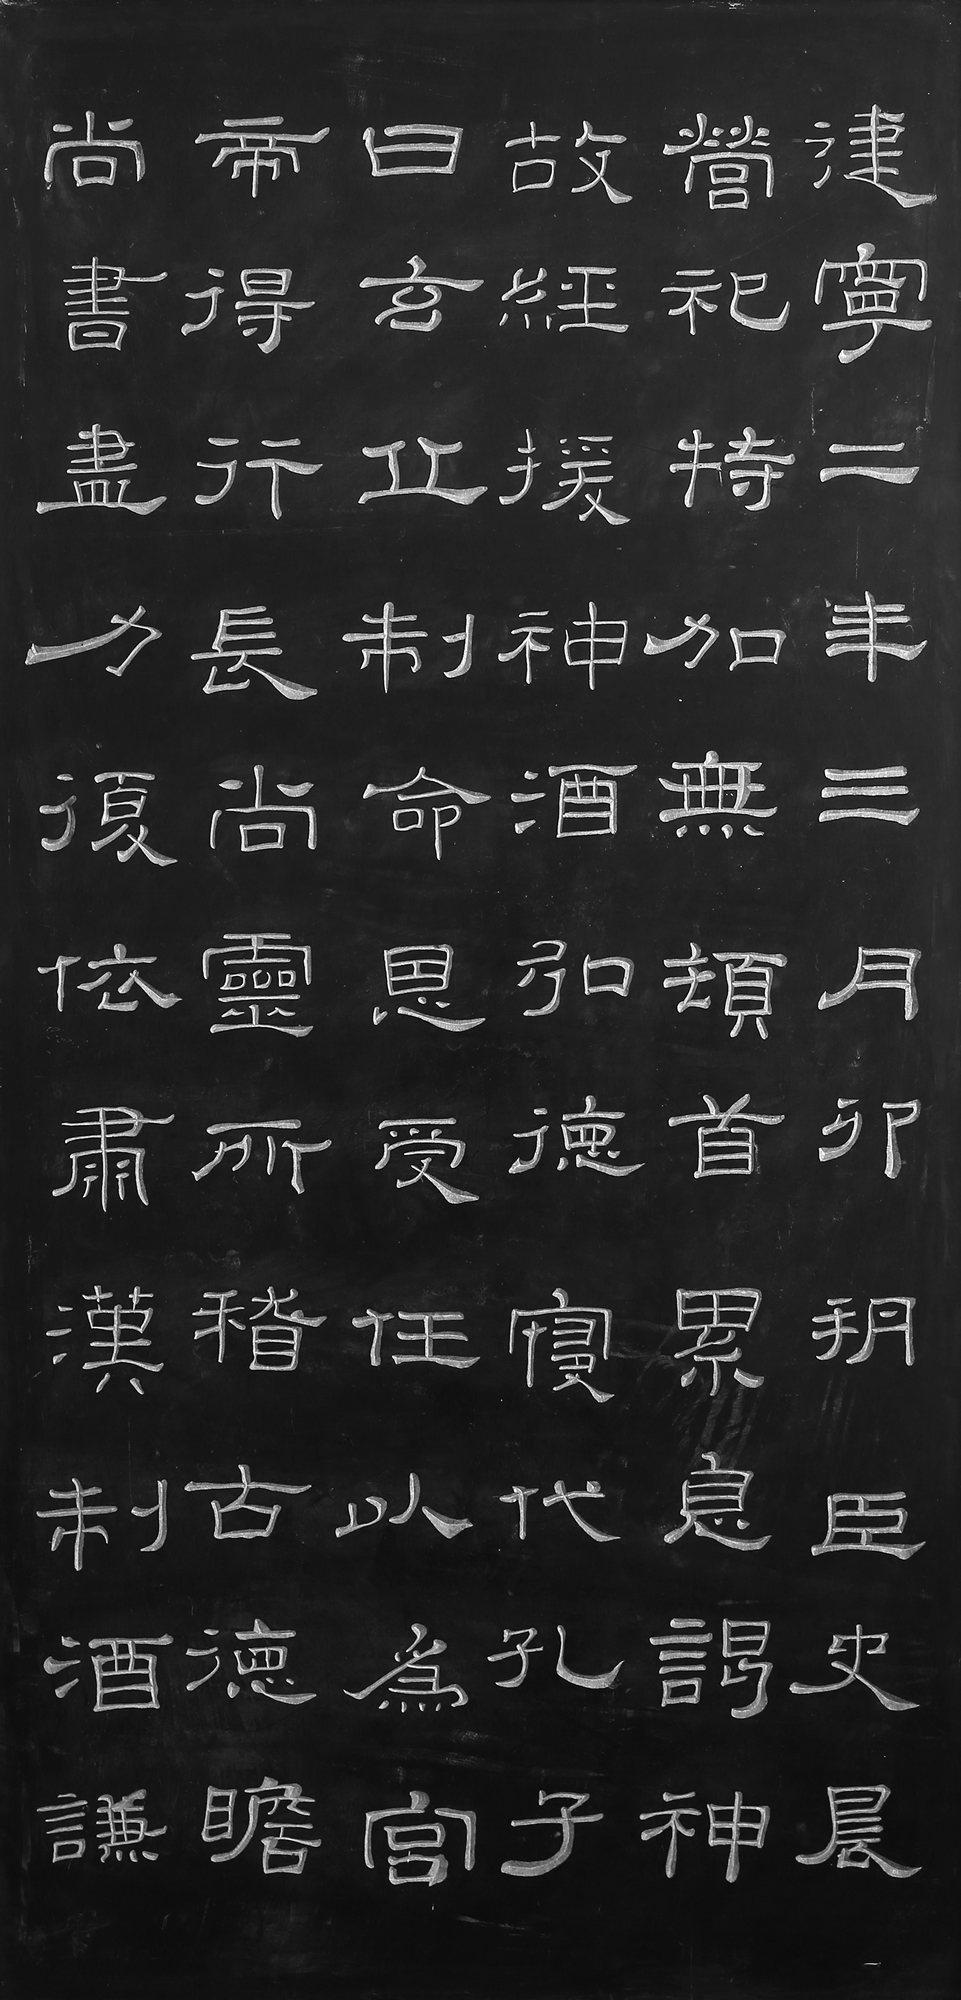 建寧二年三月卯朔臣史晨
營祀特加無頓首累息謁神
故經援神酒弘德寑代孔子
曰玄丘制命思受任以為宮
帝得行長尚靈所稽古德瞻
尚書盡力復依肅漢制酒謙